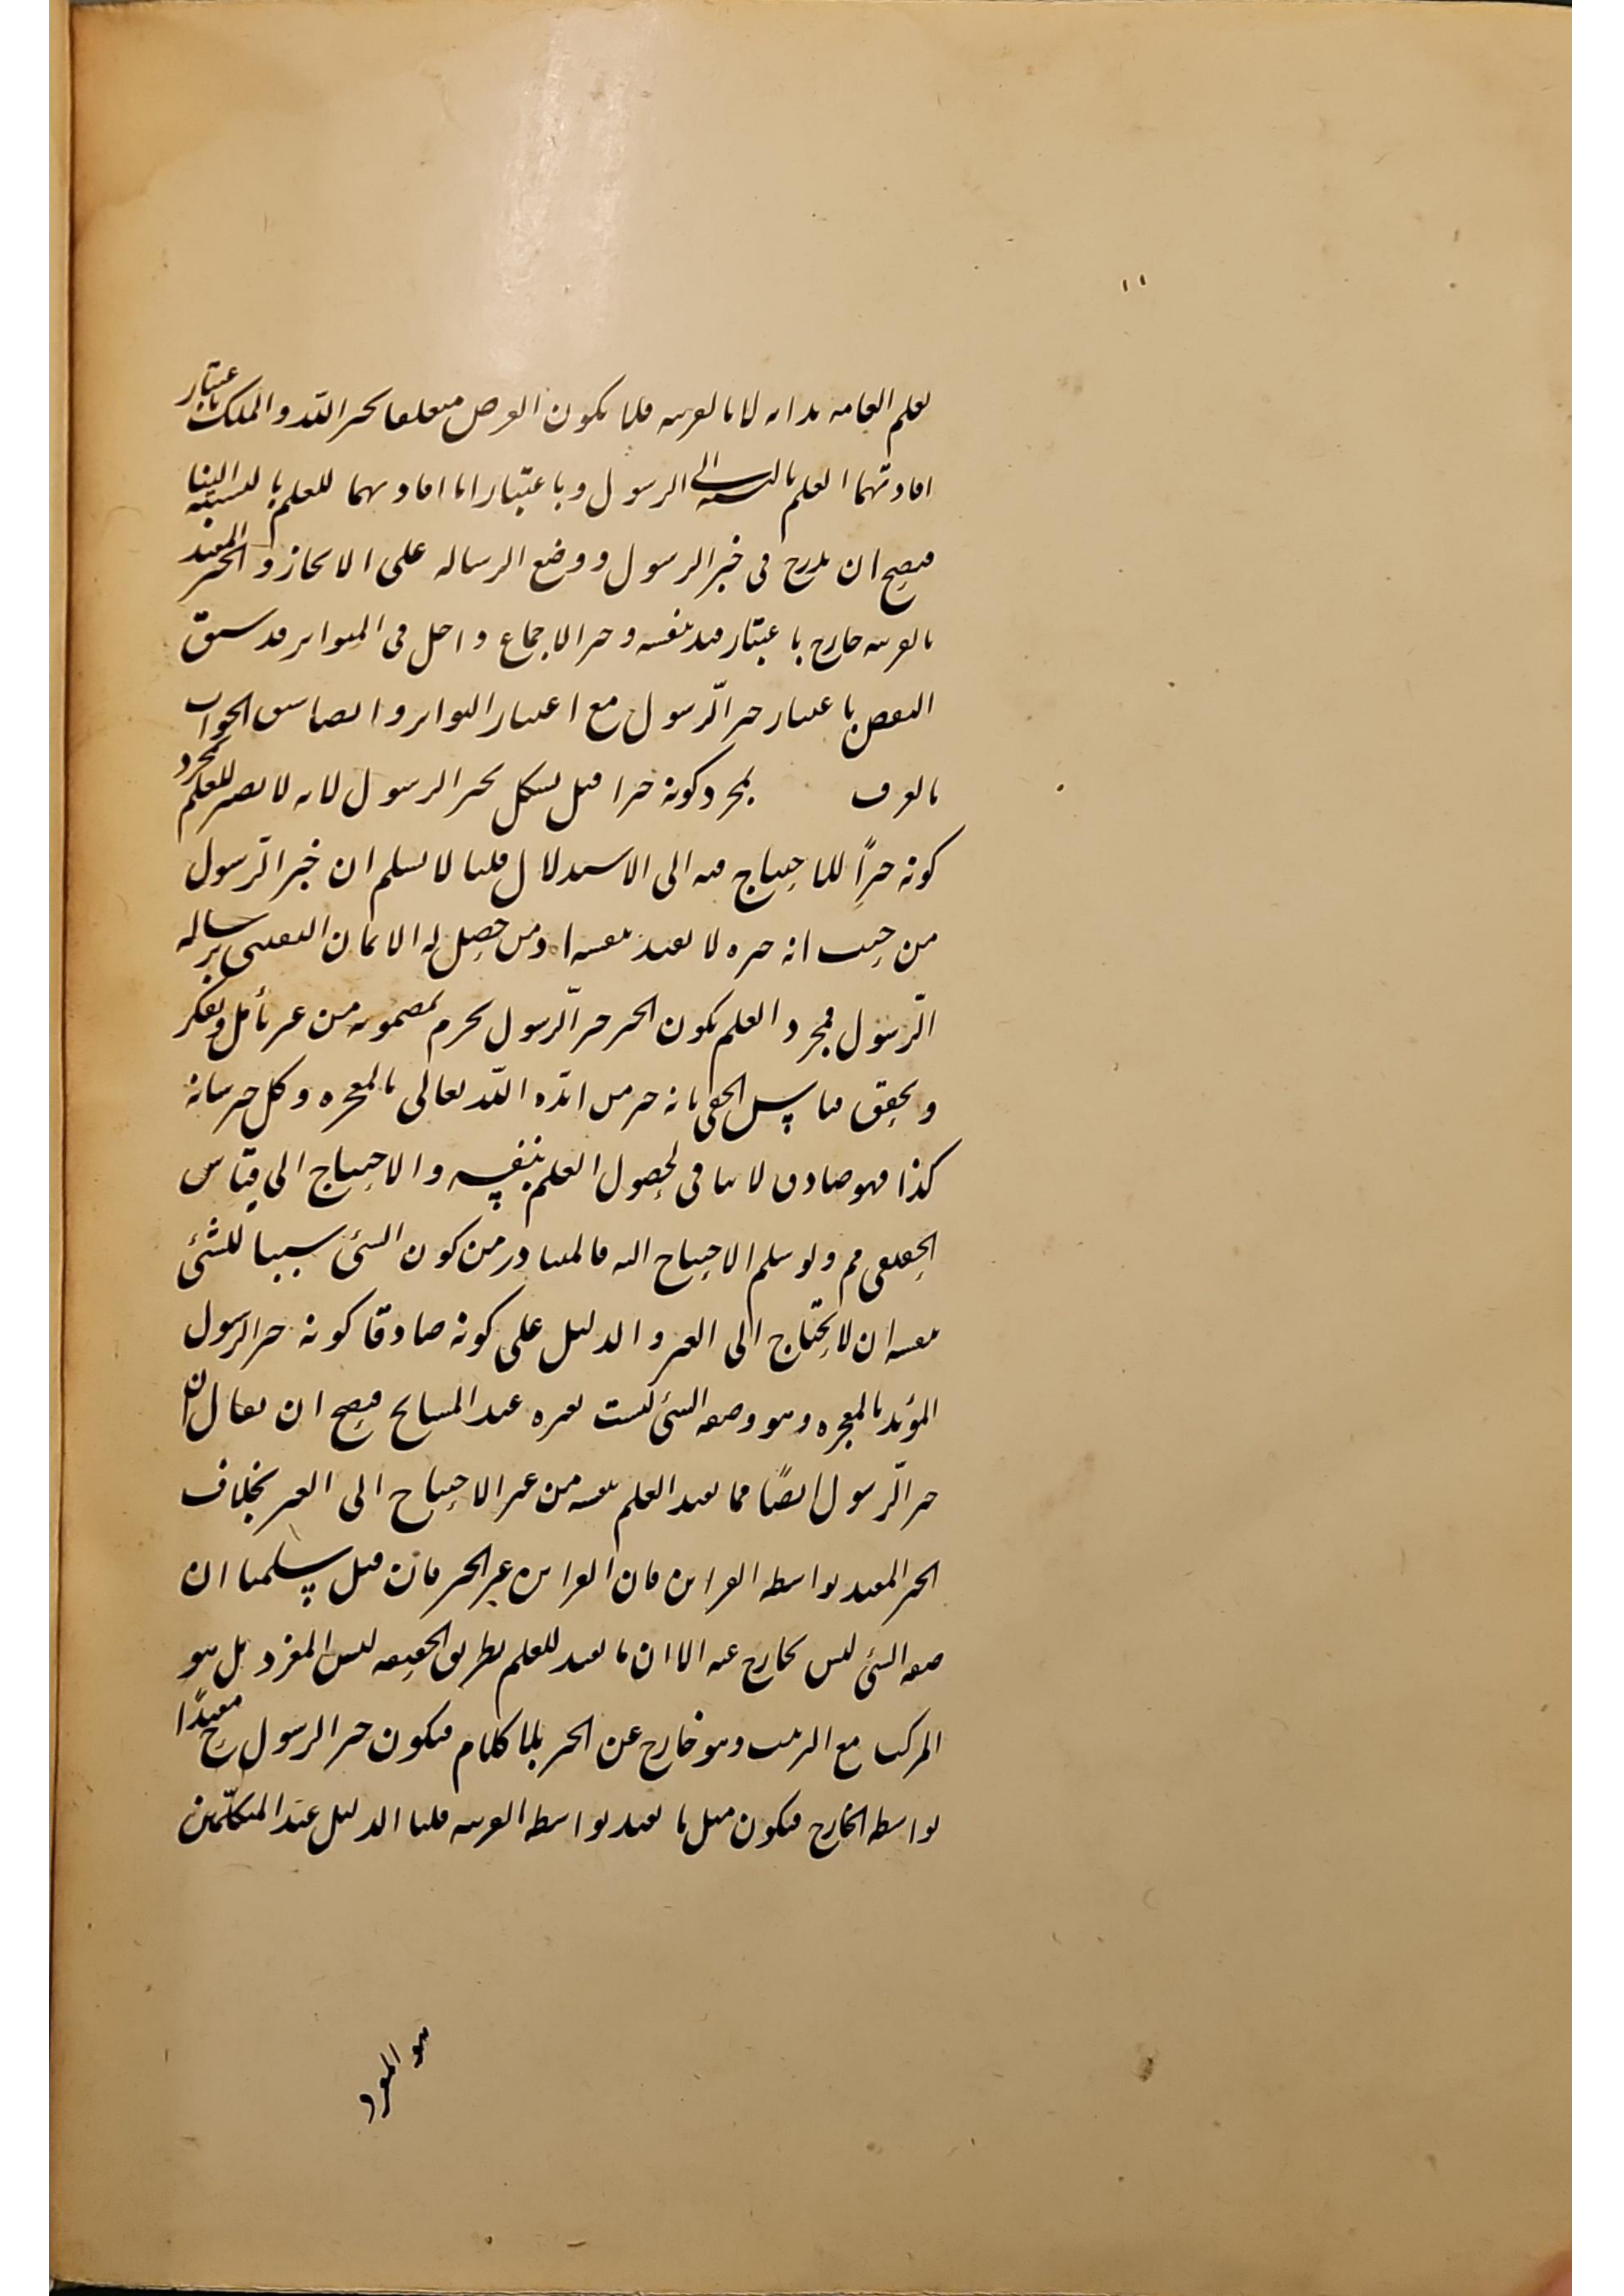 ١١
لعلم العامة بذاته لا بالقرينة فلا يكون الغرض متعلقا بخبر الله والملك باعتبار
افادتهما العلم بالنسبة الى الرسول وباعتبار انا افادتهما للعلم بالنسبة الينا
فيصح ان يدرج في خبر الرسول ووضع الرسالة على الايجاز والخبر المفيد
بالقرينة خارج باعتبار قيد بنفسه وخبر الاجماع داخل في المتواتر قد سبق
النقض باعتبار خبر الرسول مع اعتبار التواتر وايضا سبق الجواب
بالعرف بمجرد كونه خبرا قيل يشكل بخبر الرسول لانه لا يصير للعلم بمجرد
كونه خبرًا للاحتياج فيه الى الاستدلال قلنا لا نسلم ان خبر الرسول
من حيث انه خبره لا يفيد بنفسه اذ من حصل له الايمان اليقيني برسالة
الرسول فبمجرد العلم بكون الخبر خبر الرسول يجزم بمضمونه من غير تأمل وتفكر
وتحقق قياس الخفي بانه خبر من ايّده الله تعالى بالمعجزة وكل خبر شانه
كذا فهو صادق لا ينافي لحصول العلم بنفسه والاحتياج الى قياس
الحقيقي مم ولو سلم الاحتياج اليه فالمتبادر من كون الشئ سببا للشئ
بنفسه ان لا يحتاج الى الغير والدليل على كونه صادقا كونه خبر الرسول
المؤيد بالمعجزة وهو وصفه الشئ ليست بغيره عند المشايخ فيصح ان يقال ان
خبر الرسول ايضًا مما يفيد العلم بنفسه من غير الاحتياج الى الغير بخلاف
الخبر المفيد بواسطة القراين فان القراين غير الخبر فان قيل سلمنا ان
صفة الشئ ليس بخارج عنه الا ان ما يفيد للعلم بطريق الحقيقة ليس المفرد بل هو
المركب مع الترتيب وهو خارج عن الخبر بلا كلام فيكون خبر الرسول ح مفيدًا
بواسطة الخارج فيكون مثل ما يفيد بواسطة القرينة قلنا الدليل عند المتكلمين
هو المفرد